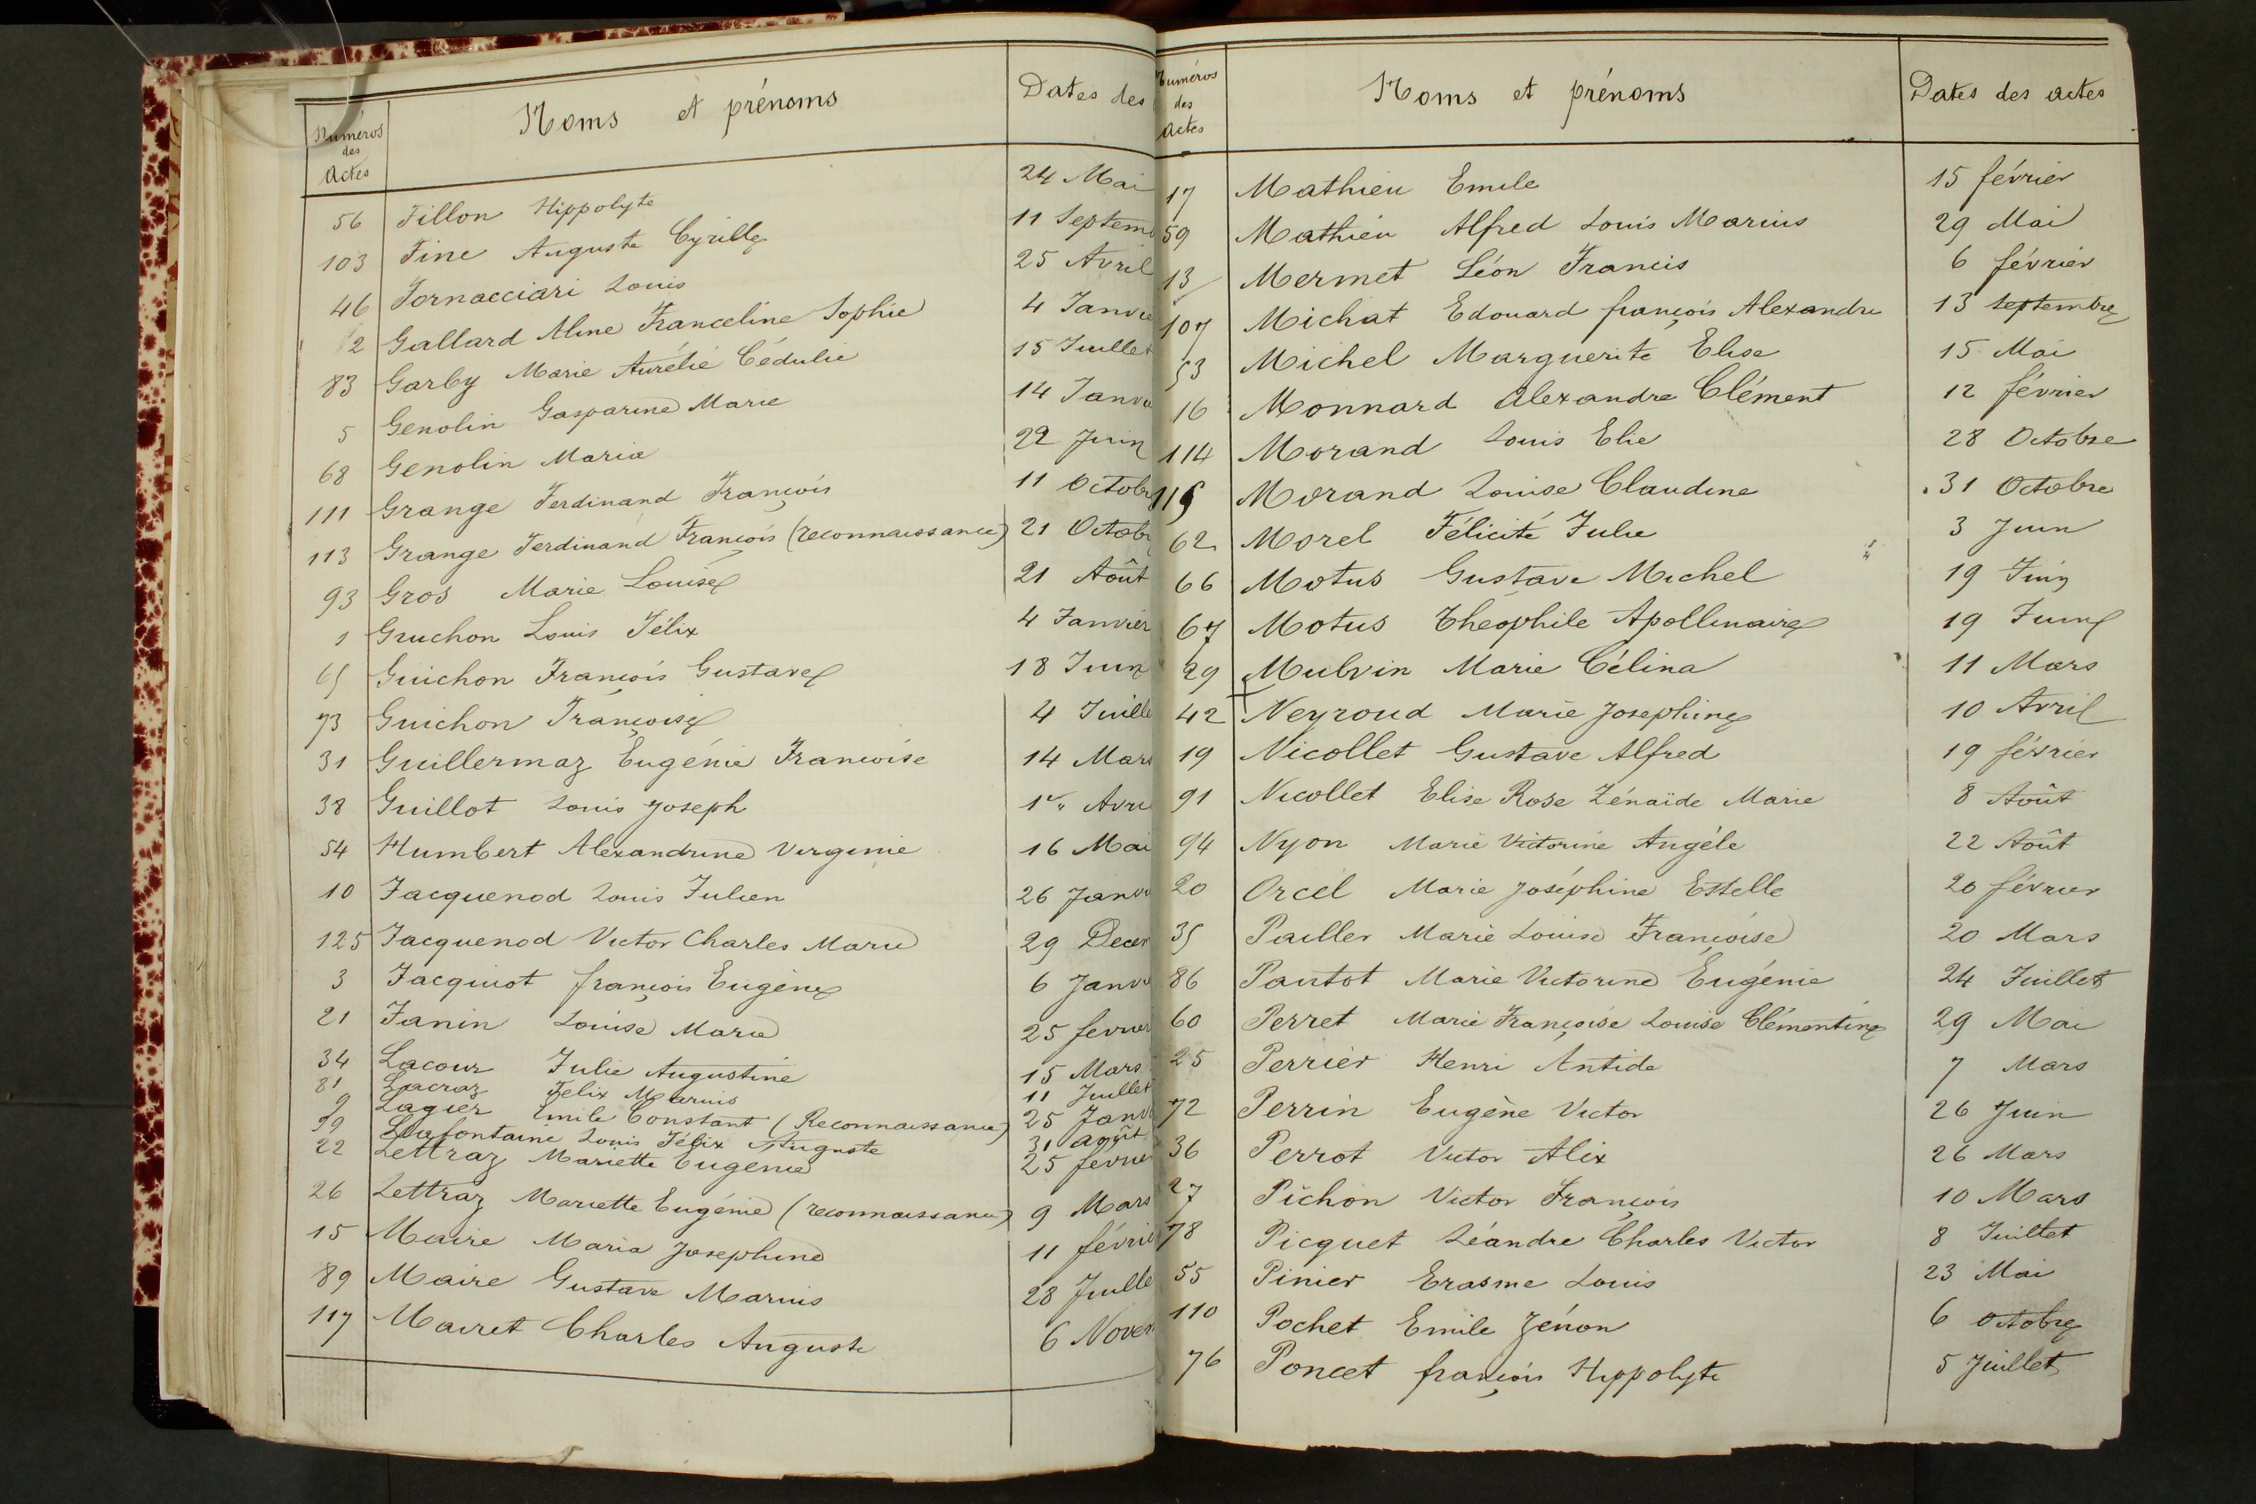 Numéros des Actes Noms et prénoms Dates des
56 Fillon Hippolyte 24 Mai
103 Fine Auguste Cyrille 11 Septem
46 Fornacciari Louis 25 Avril
2 Gallard Aline Franceline Sophie 4 Janvie
83 Garby Marie Aurélie Cédulie 15 Juillet
5 Genolin Gasparine Marie 14 Janvie
68 Genolin Maria 22 Juin
111 Grange Ferdinand François 11 Octobr
113 Grange Ferdinand François (reconnaissance) 21 Octobr
93 Gros Marie Louise 21 Août
1 Gruchon Louis Félix 4 Janvier
65 Guichon François Gustave 18 Juin
73 Guichon Françoise 4 Juille
31 Guillermaz Eugénie Françoise 14 Mars
38 Guillot Louis Joseph 1er Avri
54 Humbert Alexandrine Virginie 16 Mai
10 Jacquenod Louis Julien 26 Janvi
125 Jacquenod Victor Charles Marie 29 Decem
3 Jacquiot françois Eugène 6 Janvi
21 Janin Louise Marie 25 fevrier
34 Lacour Julie Augustine 15 Mars
81 Lacraz Felix Marius 11 Juillet
9 Lagier Emile Constant (Reconnaissance) 25 Janvi
99 Lafontaine Louis Félix Auguste 31 août
22 Lettraz Mariette Eugénie 25 fevrie
26 Lettraz Mariette Eugénie (reconnaissance) 9 Mars
15 Maire Maria Josephine 11 févrie
89 Maire Gustave Marius 28 Juille
117 Mairet Charles Auguste 6 Novem
Numéros des Actes Noms et prénoms Dates des actes
17 Mathieu Emile 15 février
59 Mathieu Alfred Louis Marius 29 Mai
13 Mermet Léon Francis 6 février
107 Michat Edouard françois Alexandre 13 septembre
53 Michel Marguerite Elise 15 Mai
16 Monnard Alexandre Clément 12 février
114 Morand Louis Elie 28 Octobre
115 Morand Louise Claudine 31 Octobre
62 Morel Félicité Julie 3 Juin
66 Motus Gustave Michel 19 Juin
67 Motus Théophile Apollinaire 19 Juin
29 Mulvin Marie Célina 11 Mars
42 Neyroud Marie Josephine 10 Avril
19 Nicollet Gustave Alfred 19 février
91 Nicollet Elise Rose Zénaïde Marie 8 Août
94 Nyon Marie Victorine Angéle 22 Août
20 Orcel Marie Joséphine Estelle 20 février
35 Pailler Marie Louise Françoise 20 Mars
86 Pautot Marie Victorine Eugénie 24 Juillet
60 Perret Marie Françoise Louise Clémentine 29 Mai
25 Perrier Henri Antide 7 Mars
72 Perrin Eugène Victor 26 Juin
36 Perrot Victor Alix 26 Mars
27 Pichon Victor François 10 Mars
78 Picquet Léandre Charles Victor 8 Juillet
55 Pinier Erasme Louis 23 Mai
110 Pochet Emile Zénon 6 octobre
76 Poncet françois Hippolyte 5 Juillet